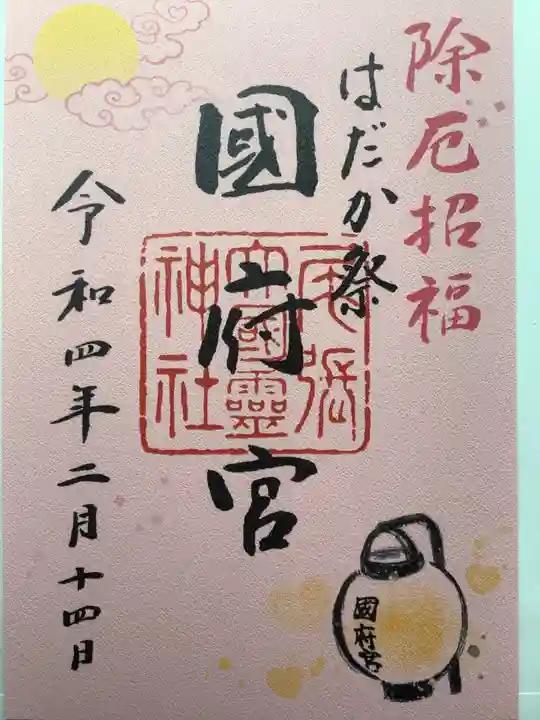 除厄招福
はだか祭
國府宮
尾張
大國靈
神社
令和四年二月十四日
國府宮